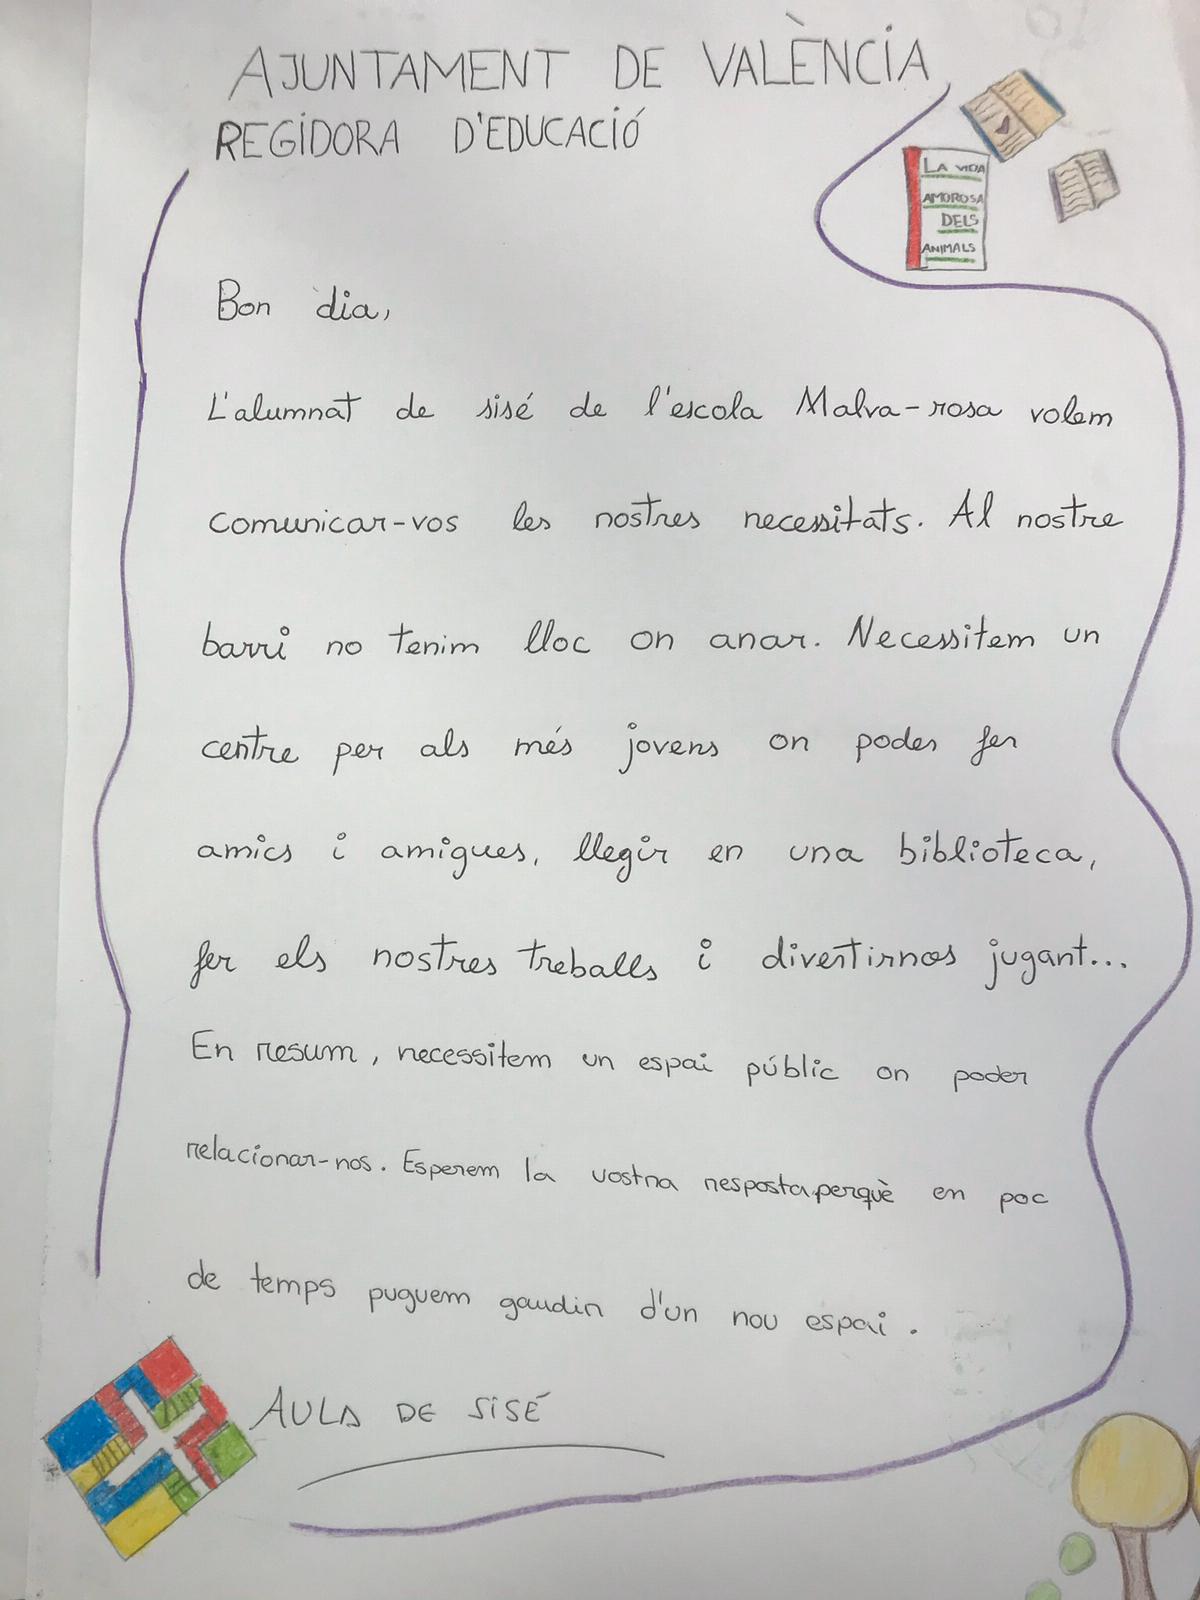 AJUNTAMENT DE VALÈNCIA
REGIDORA D'EDUCACIÓ
LA VIDA
AMOROSA
DELS
ANIMALS
Bon dia,
L'alumnat de sisé de l'escola Malva-rosa volem
comunicar-vos les nostres necessitats. Al nostre
barri no tenim lloc on anar. Necessitem un
centre per als més jovens on poder fer
amics i amigues, llegir en una biblioteca,
fer els nostres treballs i divertirnos jugant...
En resum, necessitem un espai públic on poder
relacionar-nos. Esperem la vostra resposta,perquè en poc
de temps puguem gaudir d'un nou espai.
AULA DE SISÉ